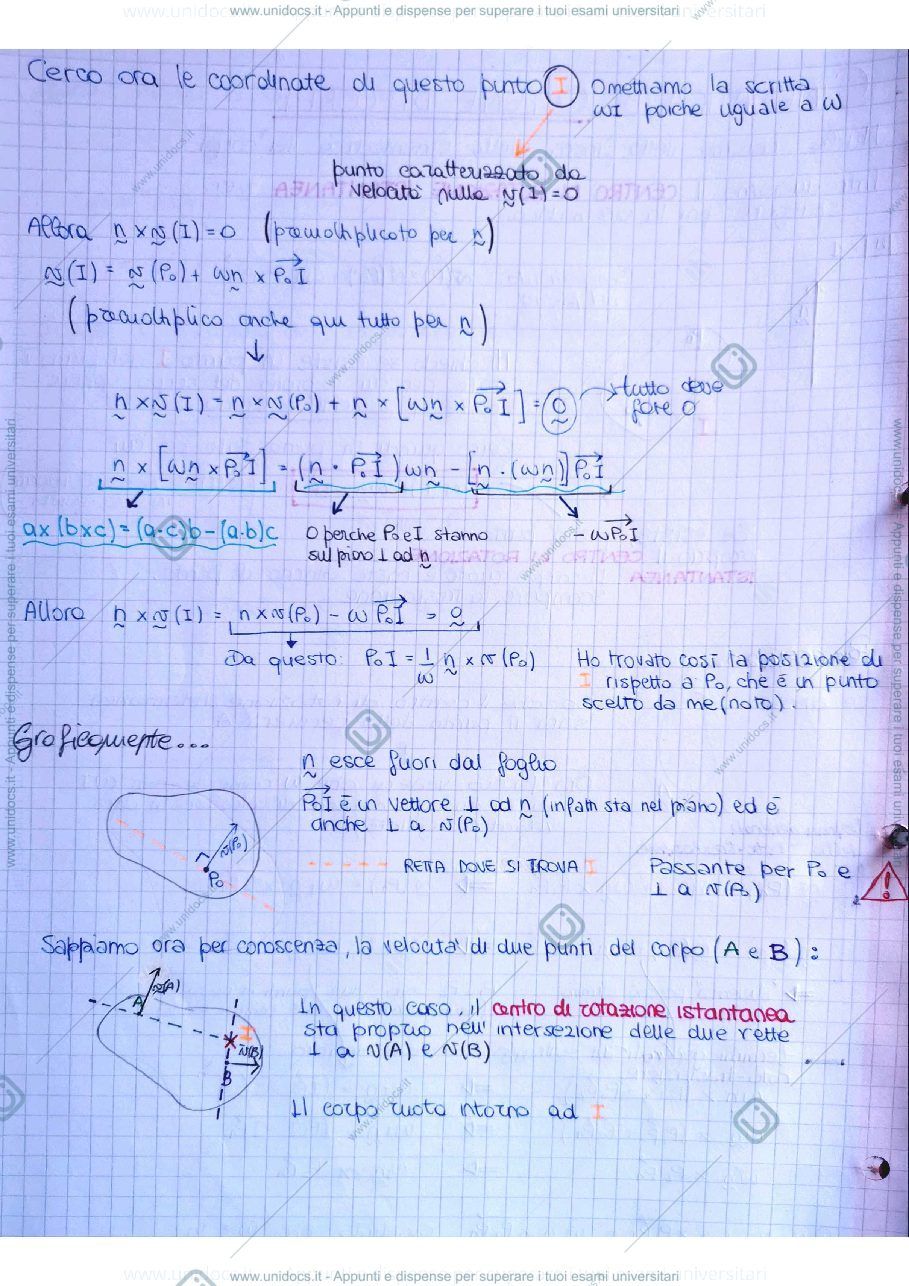 www.unidocs.it - Appunti e dispense per superare i tuoi esami universitari
Cerco ora le coordinate di questo punto I Omettiamo la scritta
ωI poiche uguale a ω
punto caratterizzato da
velocità nulla v(I)=0
Allora n × v(I) = 0 (premoltiplicato per n)
v(I) = v(P₀) + ωn × P₀I
(premoltiplico anche qui tutto per n)
↓
n × v(I) = n × v(P₀) + n × [ωn × P₀I] = 0 → tutto deve
fare 0
n × [ωn × P₀I] = (n · P₀I) ωn - [n · (ωn)] P₀I
ax(bxc) = (a·c)b - (a·b)c 0 perche P₀ e I stanno - ωP₀I
sul piano ⊥ ad n
CENTRO DI ROTAZIONE
ISTANTANEA
Allora n × v(I) = n × v(P₀) - ω P₀I = 0
Da questo: P₀I = 1/ω n × v(P₀) Ho trovato così la posizione di
I rispetto a P₀, che è un punto
scelto da me (noto).
Graficamente...
n esce fuori dal foglio
P₀I è un vettore ⊥ ad n (infatti sta nel piano) ed è
anche ⊥ a v(P₀)
v(P₀)
P₀
----- RETTA DOVE SI TROVA I Passante per P₀ e
⊥ a v(P₀)
Sappiamo ora per conoscenza, la velocità di due punti del corpo (A e B):
A v(A)
I
v(B)
B
In questo caso, il centro di rotazione istantanea
sta proprio nell'intersezione delle due rette
⊥ a v(A) e v(B)
Il corpo ruota intorno ad I
www.unidocs.it - Appunti e dispense per superare i tuoi esami universitari